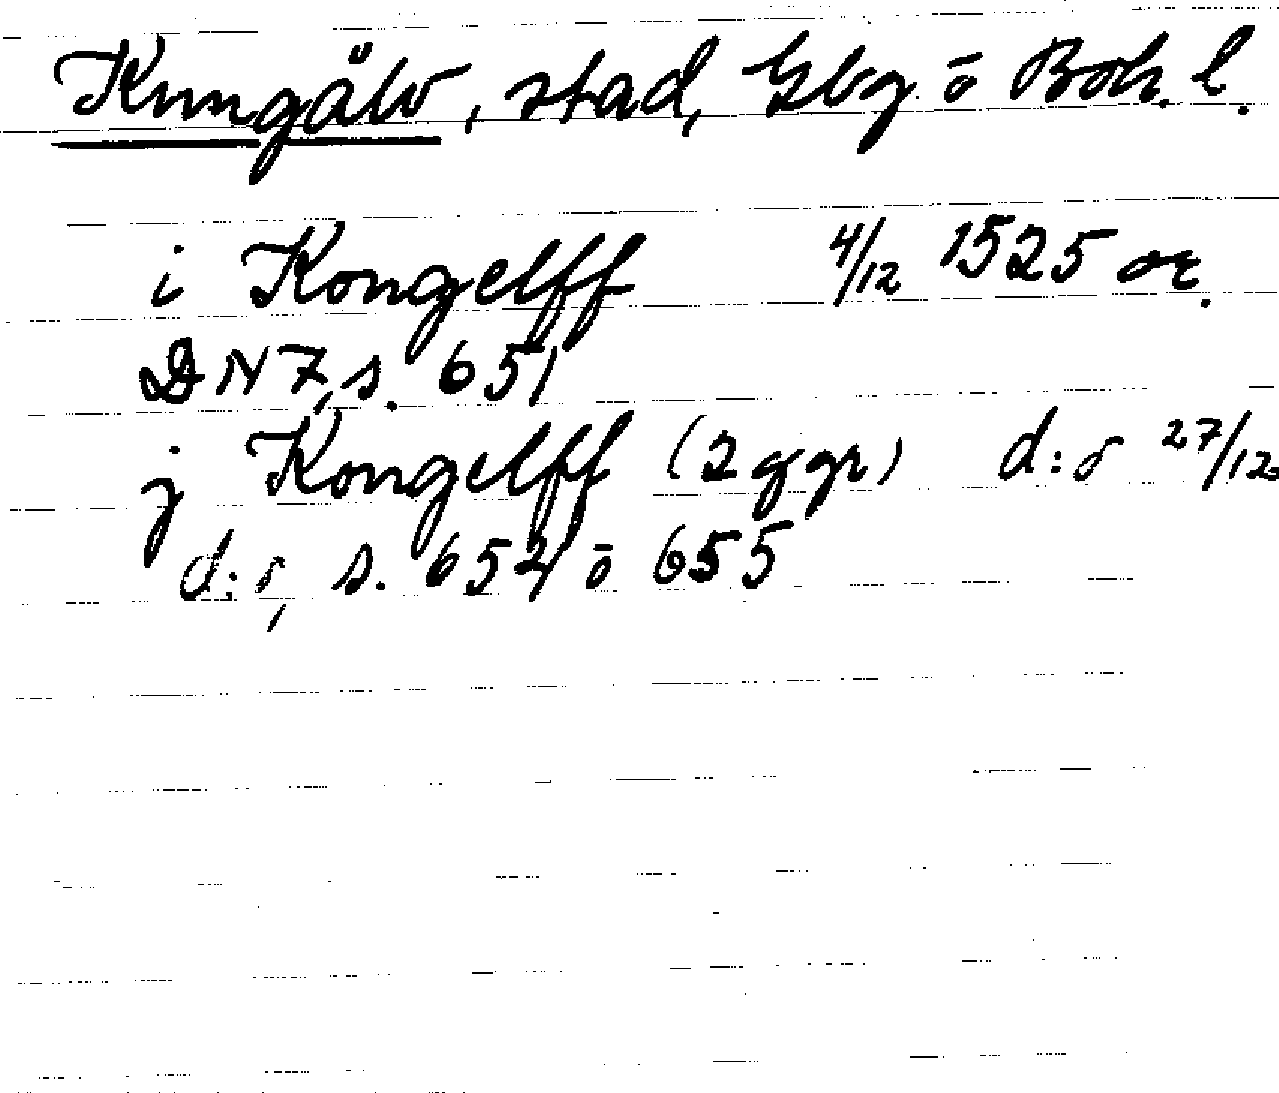 Kungälv, stad, Gbg ō Boh. l.
i Kongelff 4/12 1525 or.
DN 7, s. 651
j Kongelff (2 ggr) d:o 27/12
d:o, s. 654 ō 655